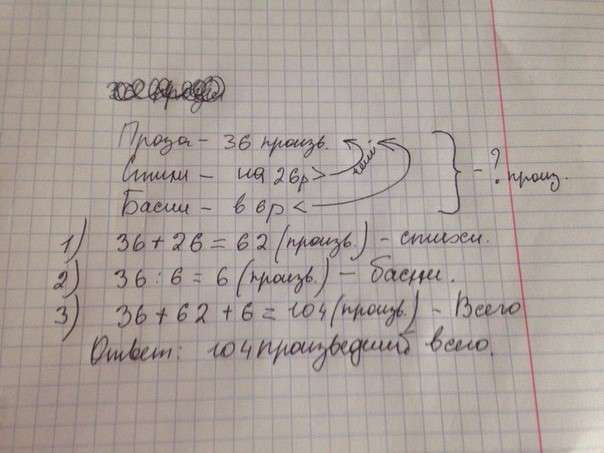 Проза - 36 произв.
Стихи - на 26р > чем
Басни - в 6р <
} - ? произ.
1) 36 + 26 = 62 (произв.) - стихи.
2) 36 : 6 = 6 (произв.) - басни.
3) 36 + 62 + 6 = 104 (произв.) - Всего
Ответ: 104 произведений всего.